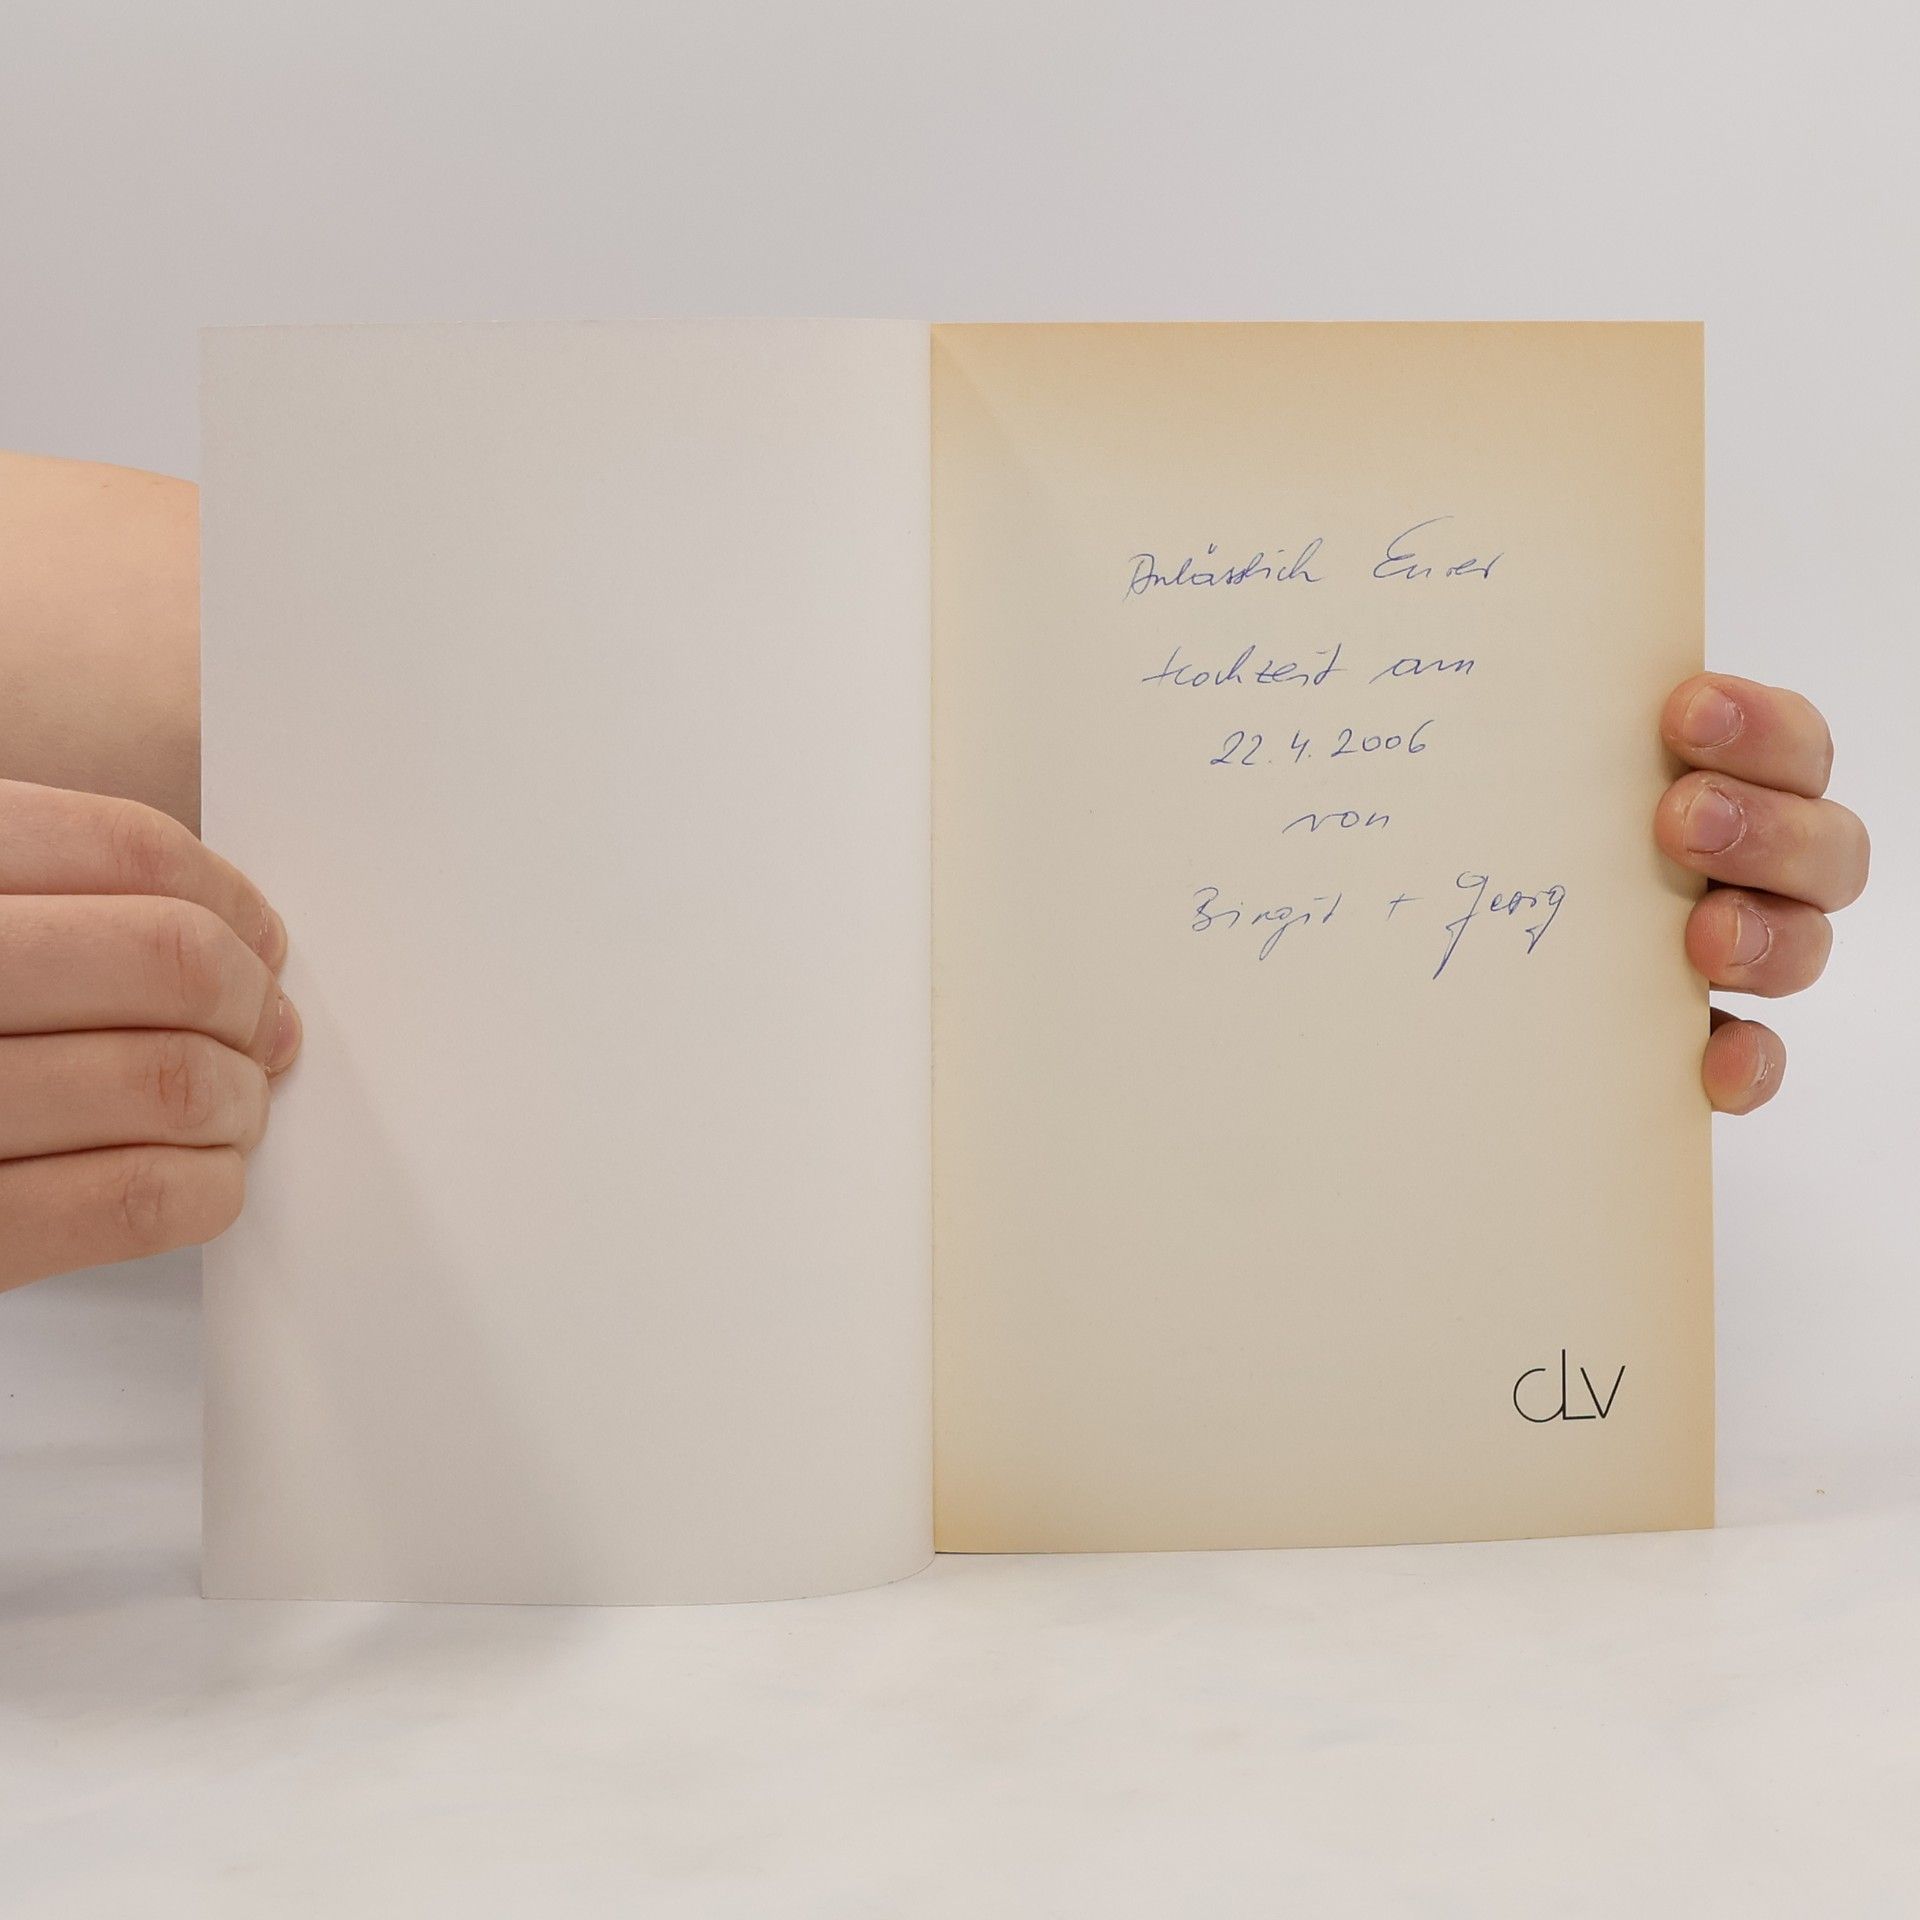 Anlässlich Eurer
Hochzeit am
22.4.2006
von
Birgit + Georg
CLV